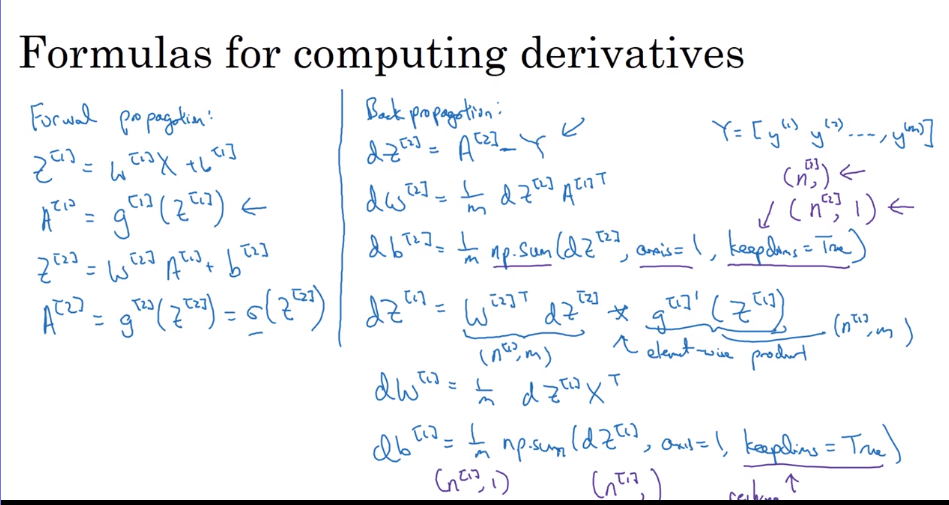 Formulas for computing derivatives
Forward propagation:
Z^[1] = W^[1] X + b^[1]
A^[1] = g^[1](Z^[1]) ←
Z^[2] = W^[2] A^[1] + b^[2]
A^[2] = g^[2](Z^[2]) = σ(Z^[2])
Back propagation:
dZ^[2] = A^[2] - Y ←
dW^[2] = 1/m dZ^[2] A^[1]T
db^[2] = 1/m np.sum(dZ^[2], axis=1, keepdims=True)
dZ^[1] = W^[2]T dZ^[2] * g^[1]'(Z^[1])
(n^[1], m) ↑ element-wise product (n^[1], m)
dW^[1] = 1/m dZ^[1] X^T
db^[1] = 1/m np.sum(dZ^[1], axis=1, keepdims=True)
(n^[1], 1) (n^[1],) ↑
Y = [y^(1) y^(2) ..., y^(m)]
(n^[2],) ←
↙ (n^[2], 1) ←